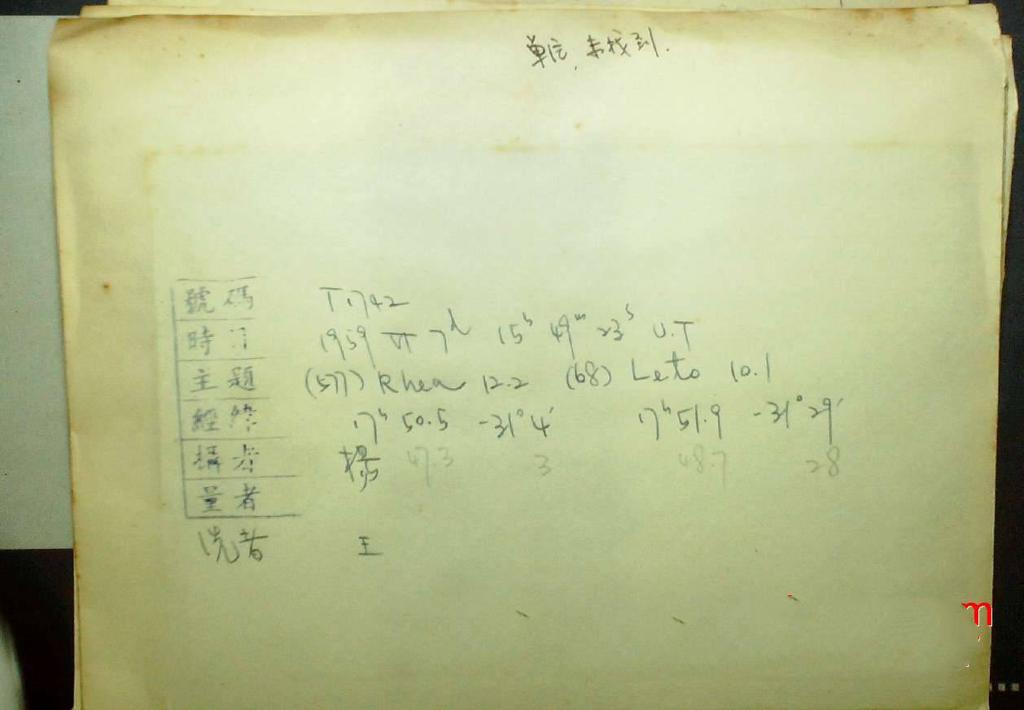 单位,未找到.
號碼 T1742
時間 1959 VI 7ᵈ 15ʰ 49ᵐ 23ˢ U.T
主題 (577) Rhea 12.2 (68) Leto 10.1
經緯 17ʰ 50.5 -31° 4′ 17ʰ 51.9 -31° 29′
攝者 楊 47.3 3 48.7 28
量者
洗者 王
m